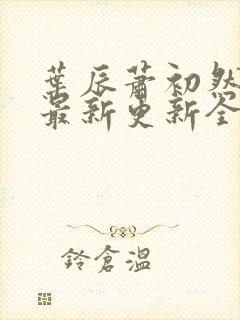 葉辰蕭初然
最新更新全
鈴倉溫